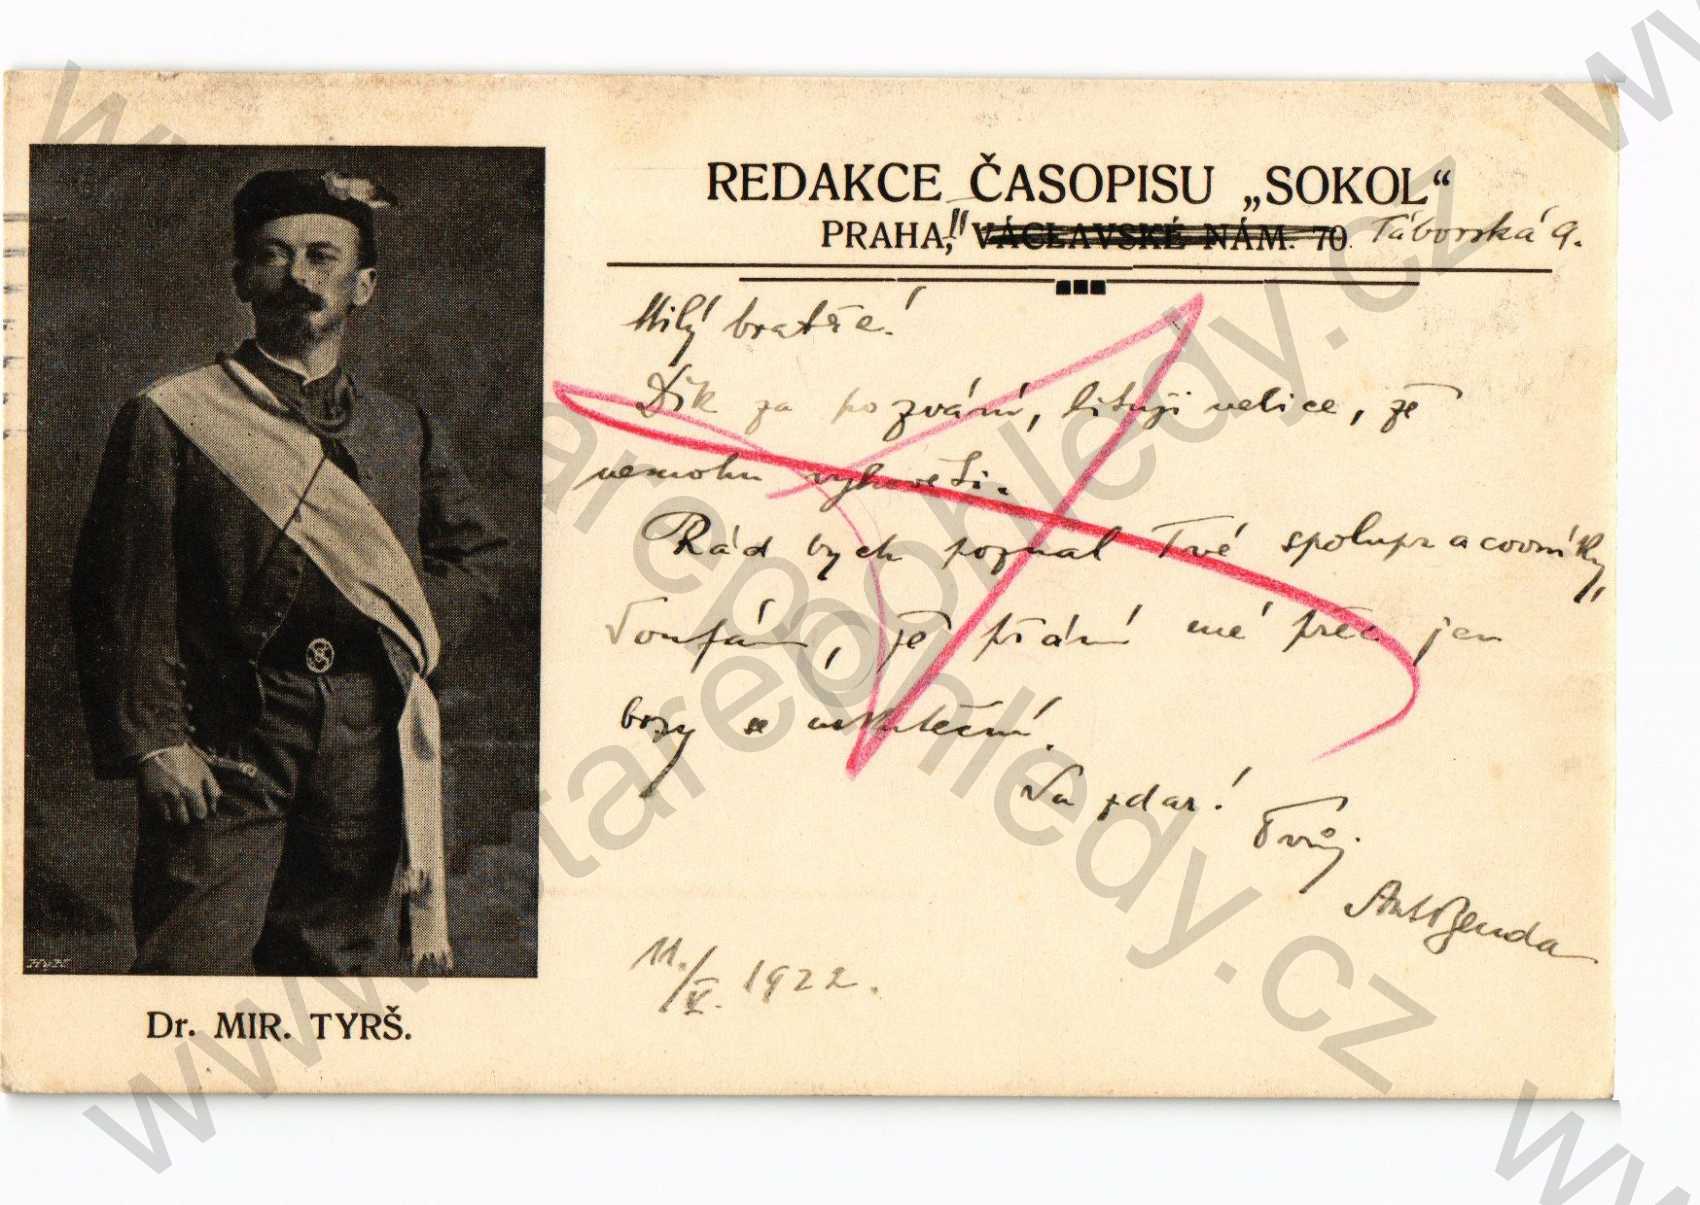 REDAKCE ČASOPISU „SOKOL“
PRAHA, II VÁCLAVSKÉ NÁM. 70. Táborská 9.
Milý bratře!
Dík za pozvání, lituji velice, že
nemohu vyhověti.
Rád bych poznal Tvé spolupracovníky,
doufám, že přání mé přec jen
brzy se uskuteční.
Na zdar!
Tvůj
Ant Benda
11./V. 1922.
Dr. MIR. TYRŠ.
www.starepohledy.cz
www.starepohledy.cz